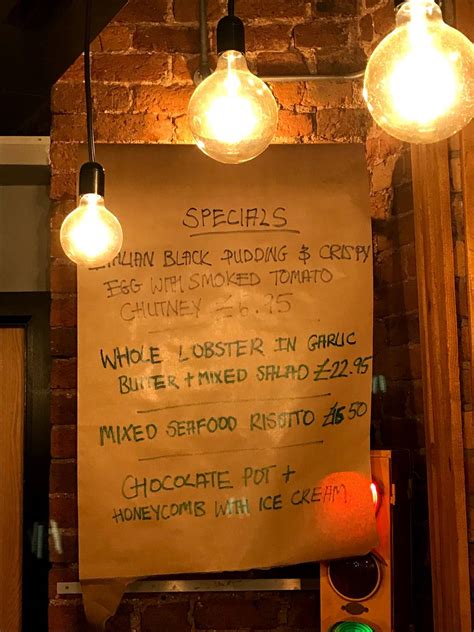 SPECIALS
ITALIAN BLACK PUDDING & CRISPY
EGG WITH SMOKED TOMATO
CHUTNEY £6.95
WHOLE LOBSTER IN GARLIC
BUTTER + MIXED SALAD £22.95
MIXED SEAFOOD RISOTTO £16.50
CHOCOLATE POT +
HONEYCOMB WITH ICE CREAM